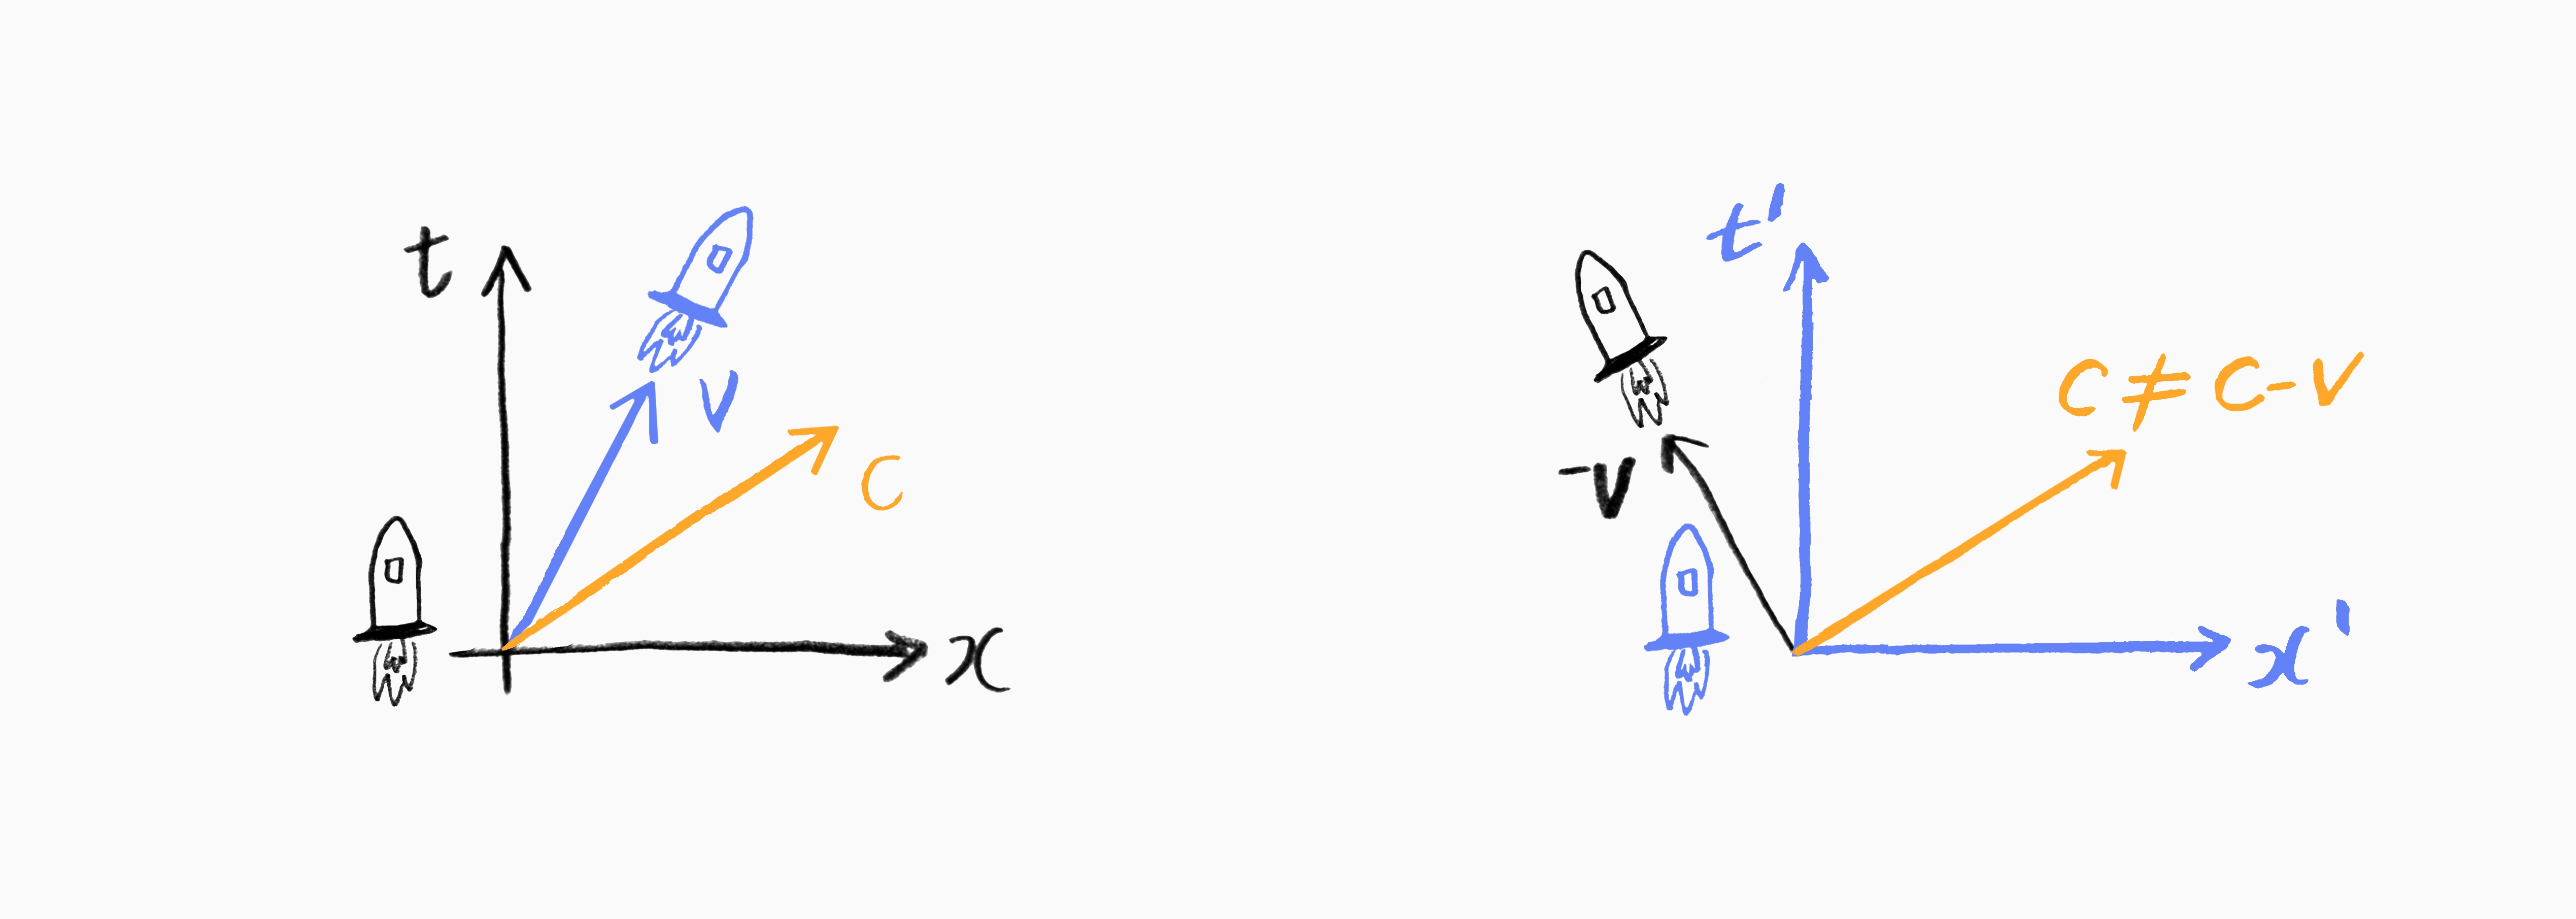 t
V
C
x
t'
C ≠ C-V
-V
x'